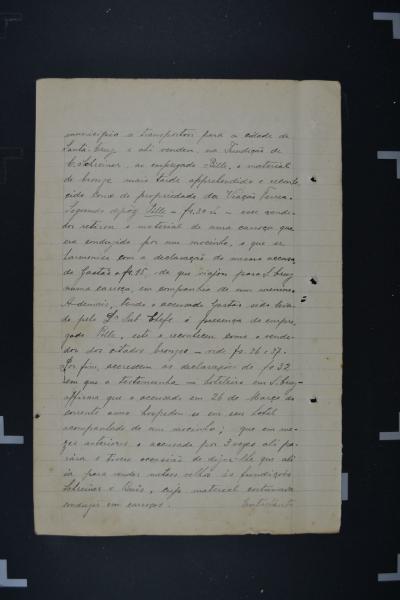 municipio e transportou para a cidade de
Santa Cruz e ali vendeu, na Fundição de
C. Schreiner, ao empregado Pille, o material
de bronze mais tarde apprehendido e reconhe
cido como de propriedade da Viação Ferrea.
Segundo depôz Pille - fs. 30 v - esse vende
dor retirou o material de uma carroça que
era conduzida por um mocinho, o que se
harmonisa com a declaração do mesmo accusa
do Gastão a fs. 15, de que viajou para S. Cruz
numa carroça, em companhia de um menino.
Ademais, tendo o accusado Gastão sido leva
do pelo Dr Sub Chefe á presença do empre
gado Pille, este o reconheceu como o vende
dor dos citados bronzes - vide fs. 36 e 37.
Por fim, accrescem as declarações de fs 32
em que a testemunha - hoteleiro em S. Cruz -
affirma que o accusado em 26 de Março do
corrente anno hospedou-se em seu hotel
acompanhado de um mocinho; que em me
zes anteriores o accusado por 3 vezes ali pa
rára e tivera occasião de dizer-lhe que ali
ia para vender metaes velhos ás fundições
Schreiner e Binz, cujo material costumava
conduzir em carroças.